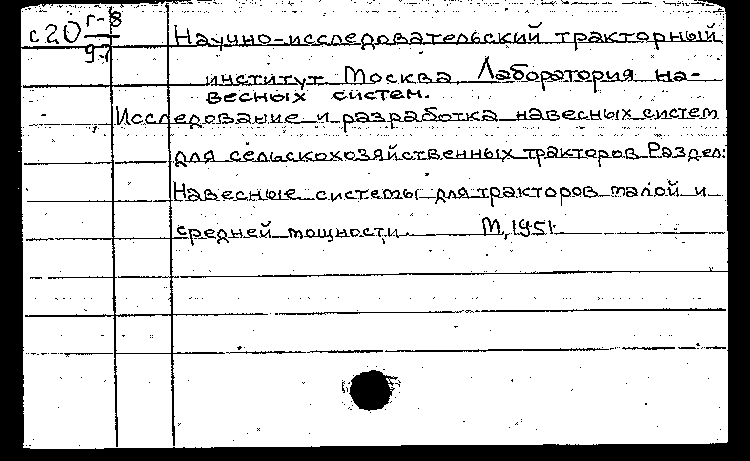 с20 г-8
97
Научно-исследовательский тракторный
институт. Москва. Лаборатория на-
весных систем.
Исследование и разработка навесных систем
для сельскохозяйственных тракторов. Раздел:
Навесные системы для тракторов малой и
средней мощности. М., 1951.